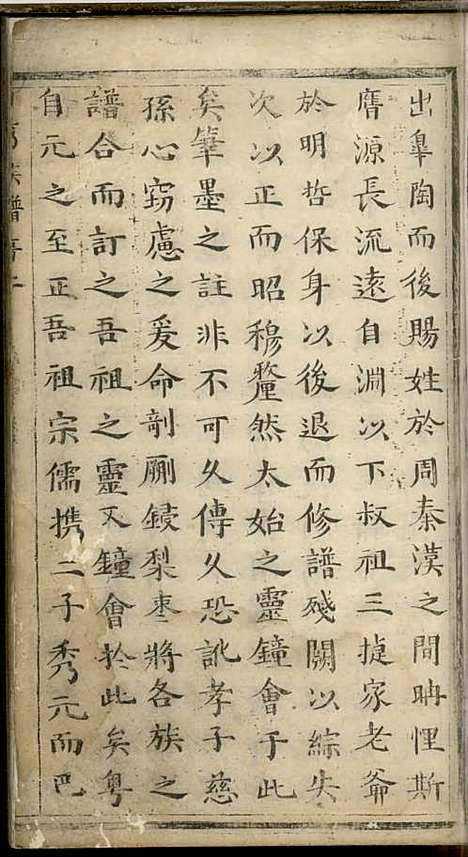 出皐陶而後賜姓於周秦漢之間呥悝斯
譍源長流遠自淵以下叔祖三捷家老爺
於明哲保身以後退而修譜殘闕以綜失
次以正而昭穆釐然太始之靈鐘會于此
矣筆墨之註非不可久傳久恐訛孝子慈
孫心窃慮之爰命剞劂鋟梨枣將各族之
譜合而訂之吾祖之靈又鐘會於此矣粤
自元之至正吾祖宗儒携二子秀元而巴
族譜序二